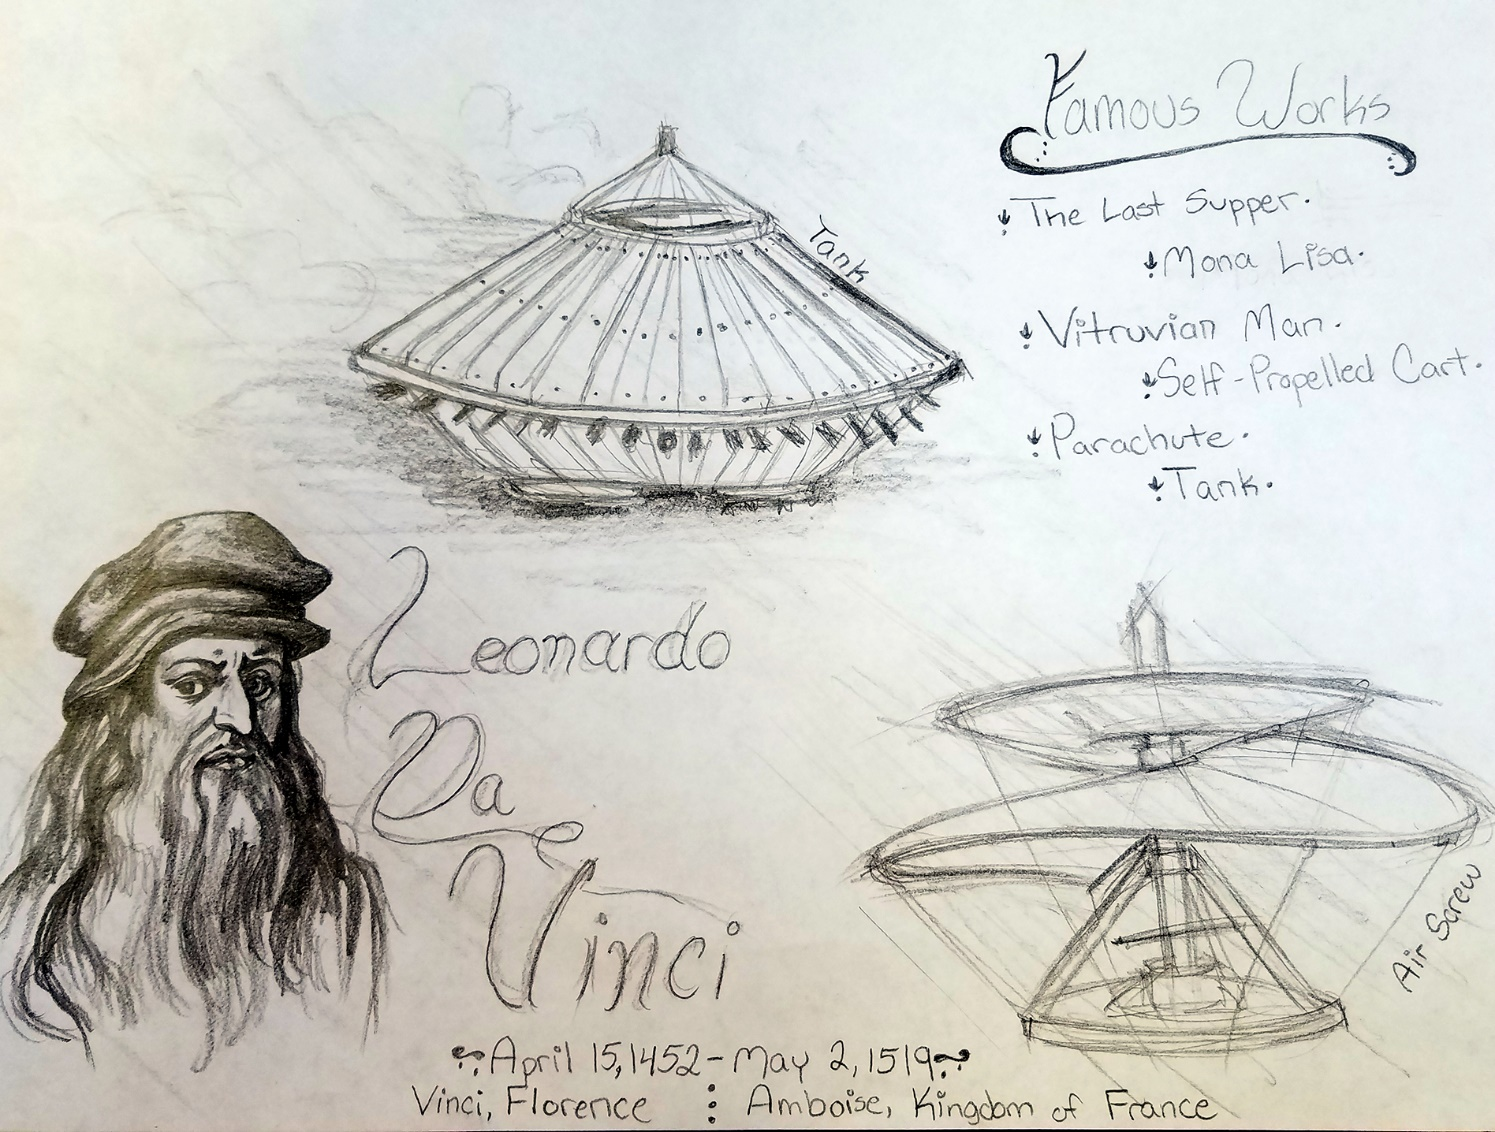 Famous Works
The Last Supper.
Mona Lisa.
Vitruvian Man.
Self-Propelled Cart.
Parachute.
Tank.
Tank
Leonardo
Da
Vinci
Air Screw
April 15, 1452 - May 2, 1519
Vinci, Florence : Amboise, Kingdom of France